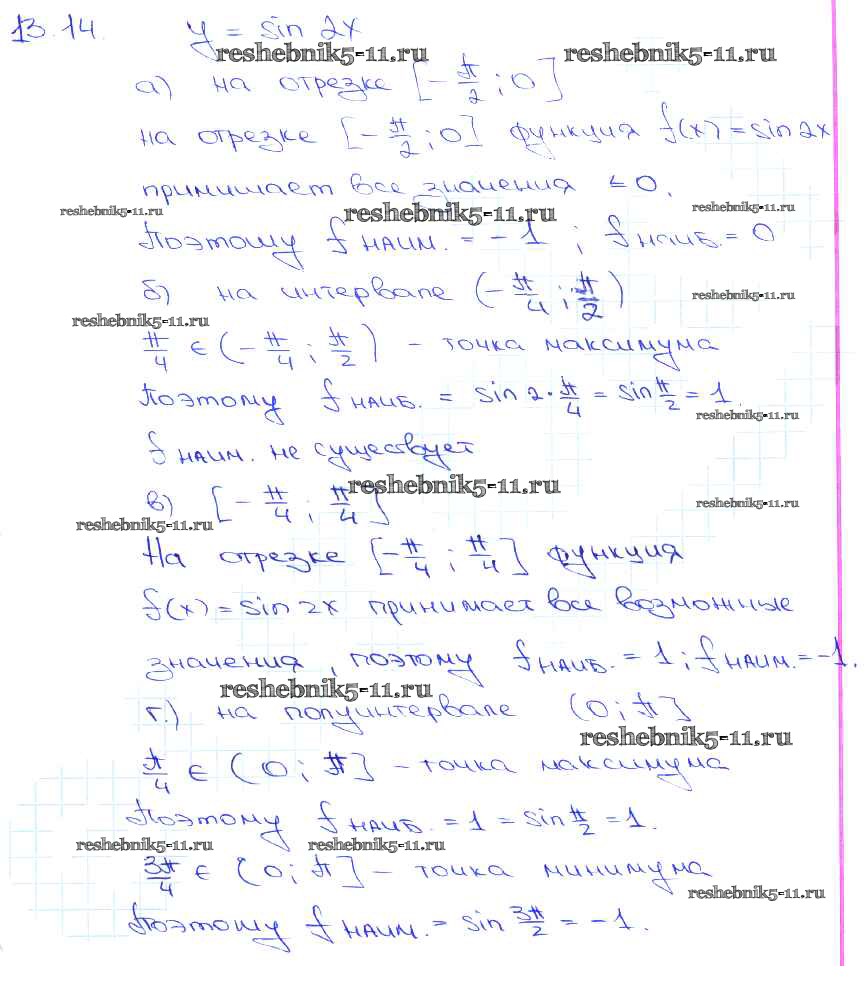 13.14. y = sin 2x
reshebnik5-11.ru reshebnik5-11.ru
а) на отрезке [-π/2; 0]
на отрезке [-π/2; 0] функция f(x) = sin 2x
принимает все значения ≤ 0.
reshebnik5-11.ru reshebnik5-11.ru reshebnik5-11.ru
Поэтому f наим. = -1 ; f наиб. = 0
б) на интервале (-π/4; π/2)
reshebnik5-11.ru
reshebnik5-11.ru
π/4 ∈ (-π/4; π/2) - точка максимума
Поэтому f наиб. = sin 2·π/4 = sin π/2 = 1.
reshebnik5-11.ru
f наим. не существует
reshebnik5-11.ru
в) [-π/4; π/4]
reshebnik5-11.ru
reshebnik5-11.ru
На отрезке [-π/4; π/4] функция
f(x) = sin 2x принимает все возможные
значения, поэтому f наиб. = 1; f наим. = -1.
reshebnik5-11.ru
г.) на полуинтервале (0; π]
reshebnik5-11.ru
π/4 ∈ (0; π] - точка максимума
Поэтому f наиб. = 1 = sin π/2 = 1.
reshebnik5-11.ru reshebnik5-11.ru
3π/4 ∈ (0; π] - точка минимума
reshebnik5-11.ru
Поэтому f наим. = sin 3π/2 = -1.